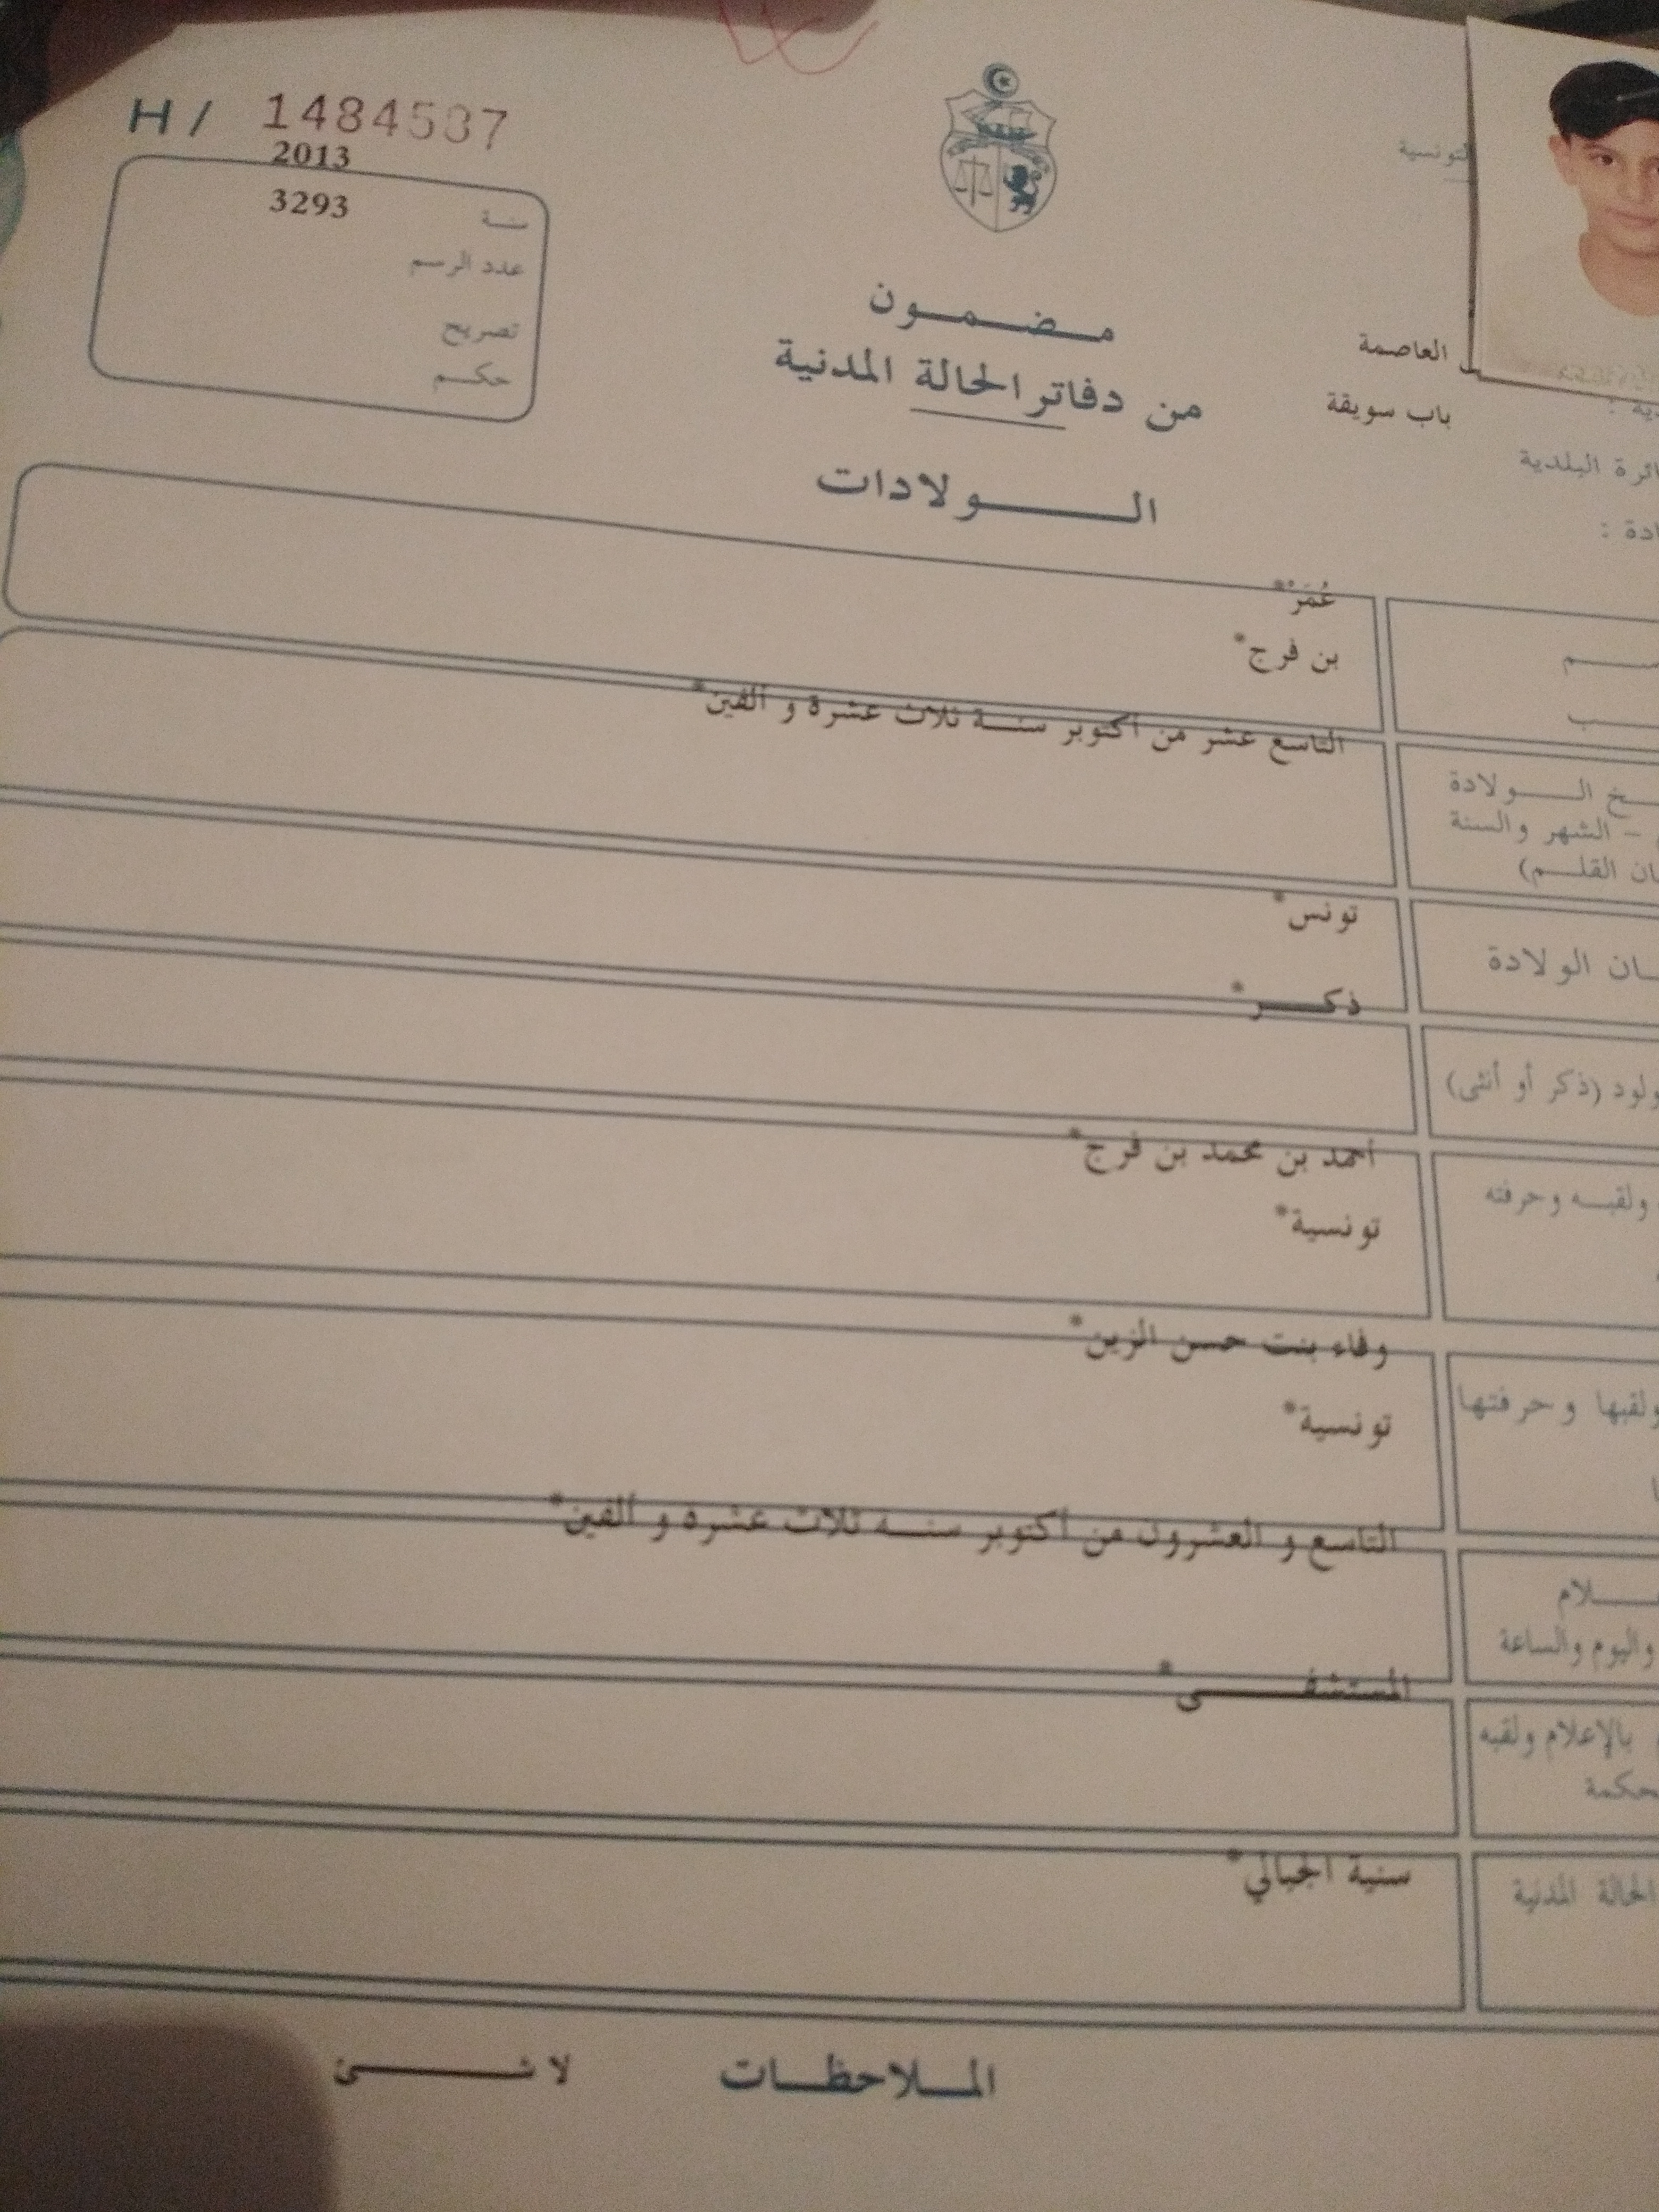 H / 1484537
2013
سنة 3293
عدد الرسم
تصريح
حكم
التونسية
مضمون
من دفاتر الحالة المدنية
الولادات
العاصمة
باب سويقة
البلدية
عُمَرْ*
بن فرج*
التاسع عشر من أكتوبر سنة ثلاث عشرة و ألفين*
الولادة
– الشهر والسنة
القلم)
تونس*
الولادة
ذكر*
(ذكر أو أنثى)
أحمد بن محمد بن فرج*
ولقبه وحرفته
تونسية*
وفاء بنت حسن الزين*
ولقبها وحرفتها
تونسية*
التاسع و العشرون من أكتوبر سنة ثلاث عشرة و ألفين*
واليوم والساعة
المستشفى*
بالإعلام ولقبه
سنية الجبالي*
الحالة المدنية
الملاحظات لا شئ